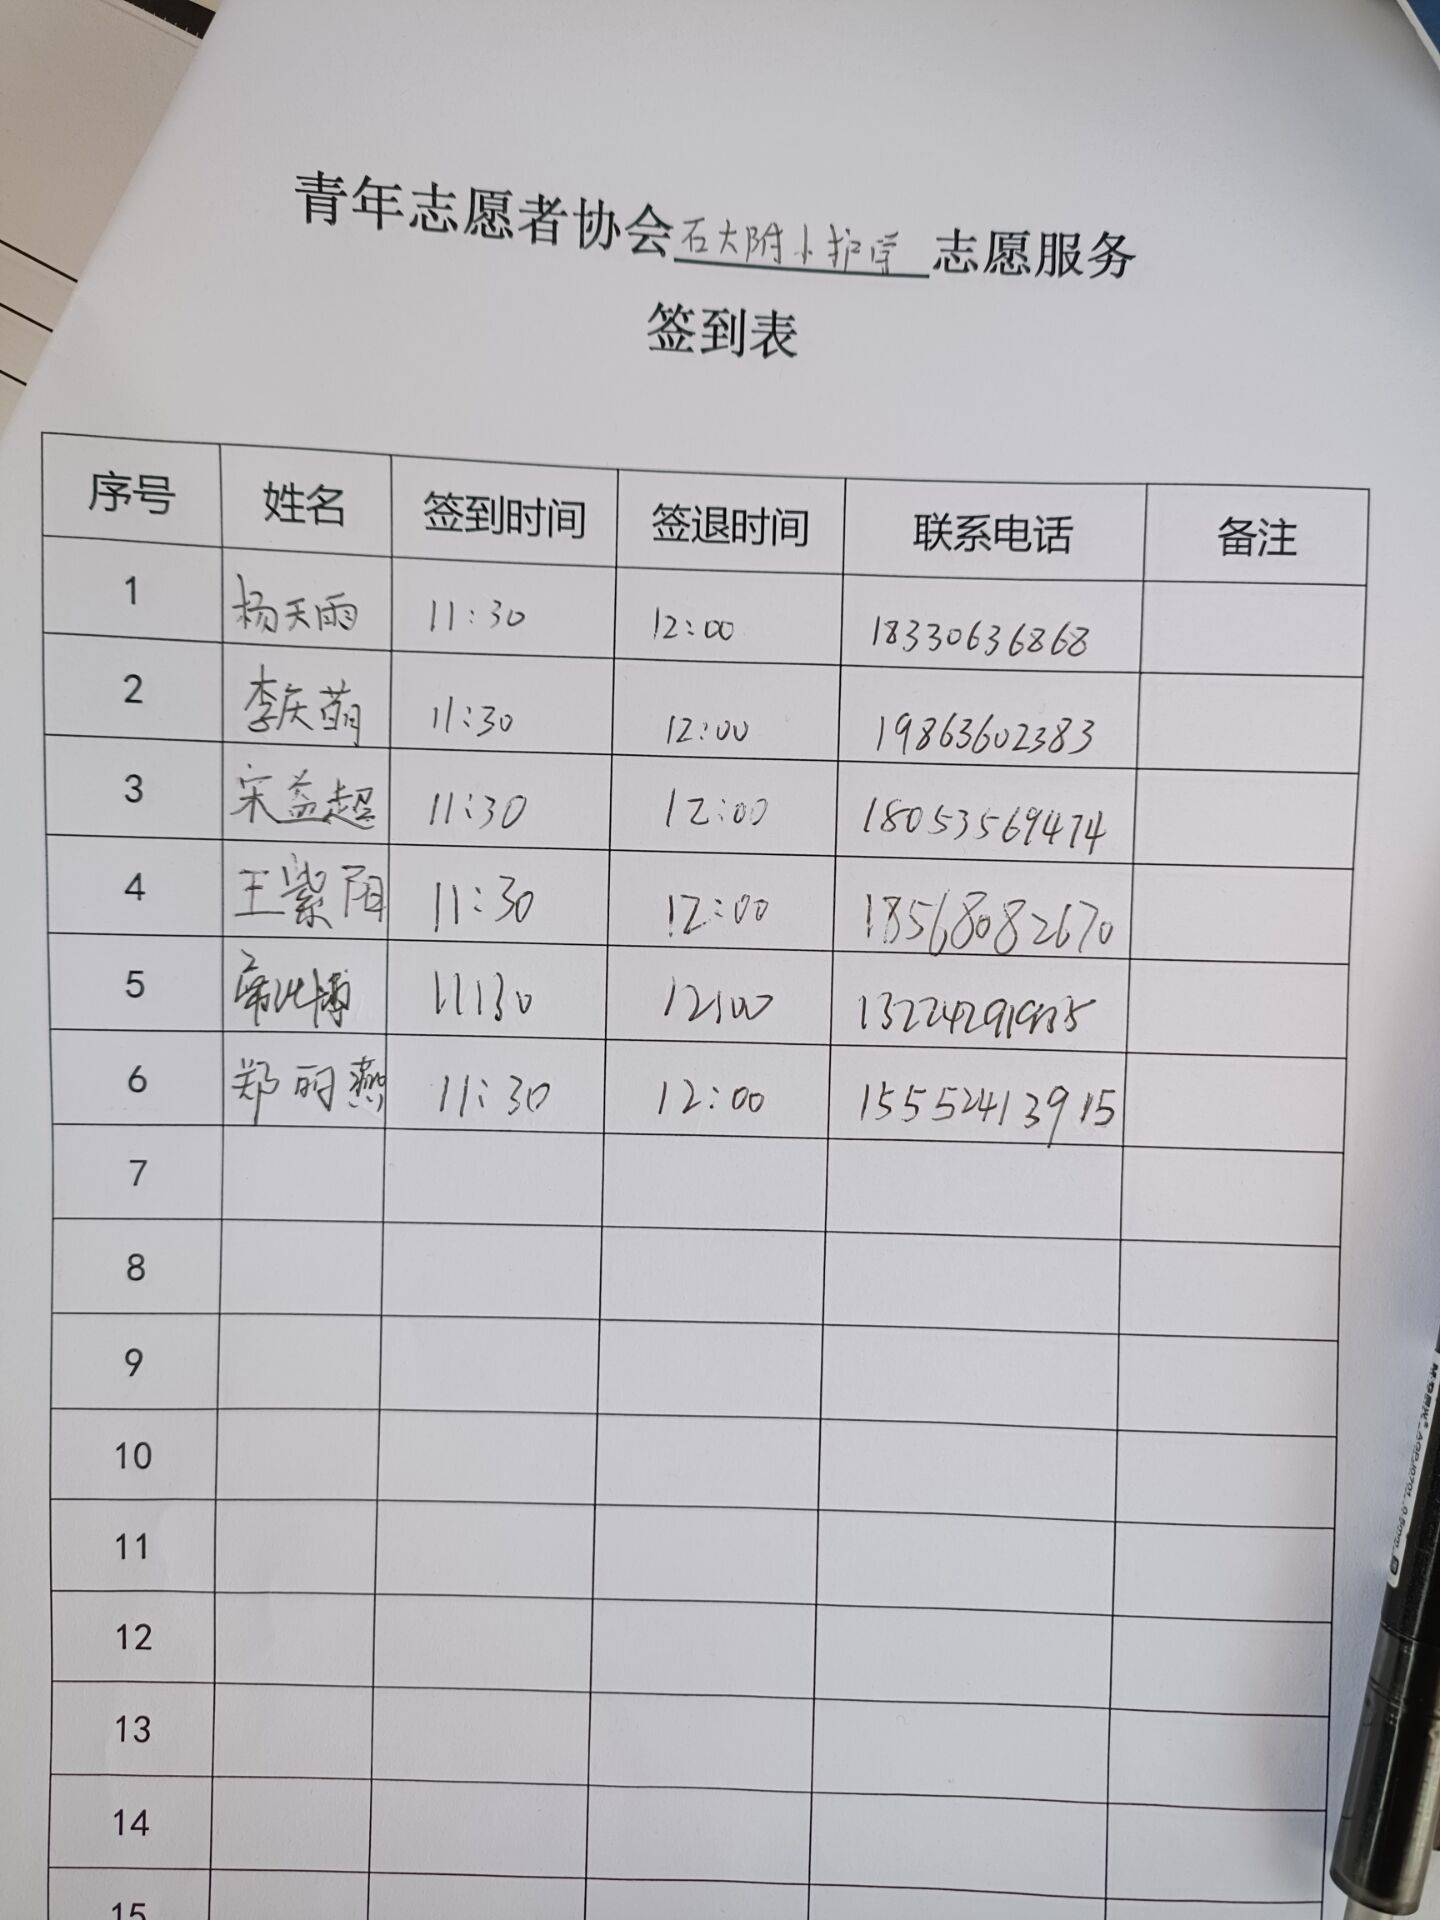 青年志愿者协会石大附小护学志愿服务
签到表
序号 姓名 签到时间 签退时间 联系电话 备注
1 杨天雨 11:30 12:00 18330636868
2 李庆萌 11:30 12:00 19863602383
3 宋益超 11:30 12:00 18053569474
4 王紫阳 11:30 12:00 18568082670
5 11:30 12:00
6 郑丽燕 11:30 12:00 15552413915
7
8
9
10
11
12
13
14
15